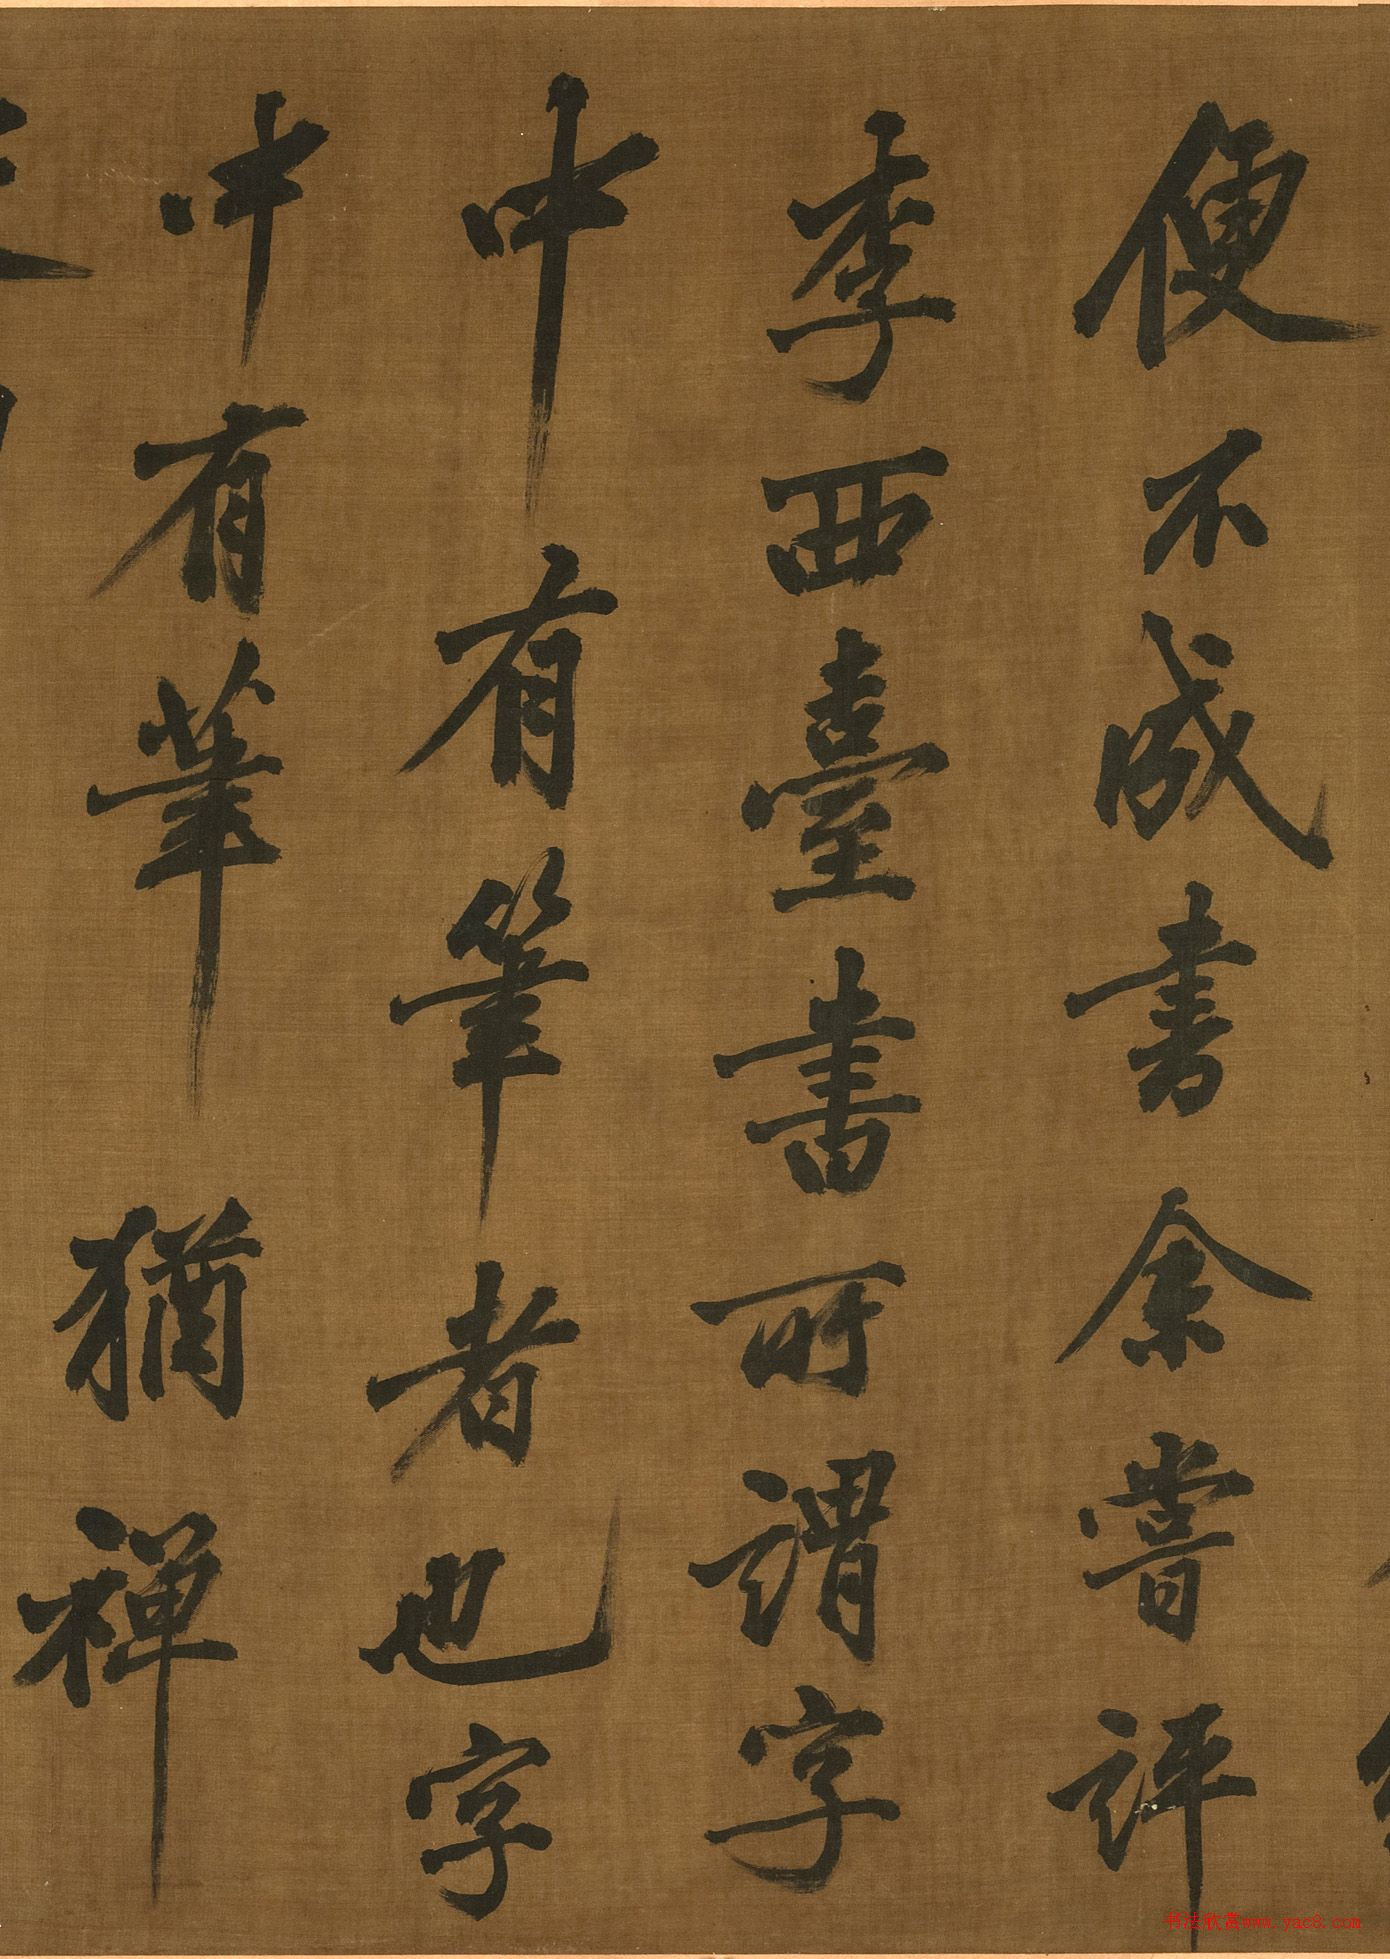 便不成書余嘗評
李西臺書所謂字
中有筆者也字
中有筆猶禪
书法欣赏www.yac8.com